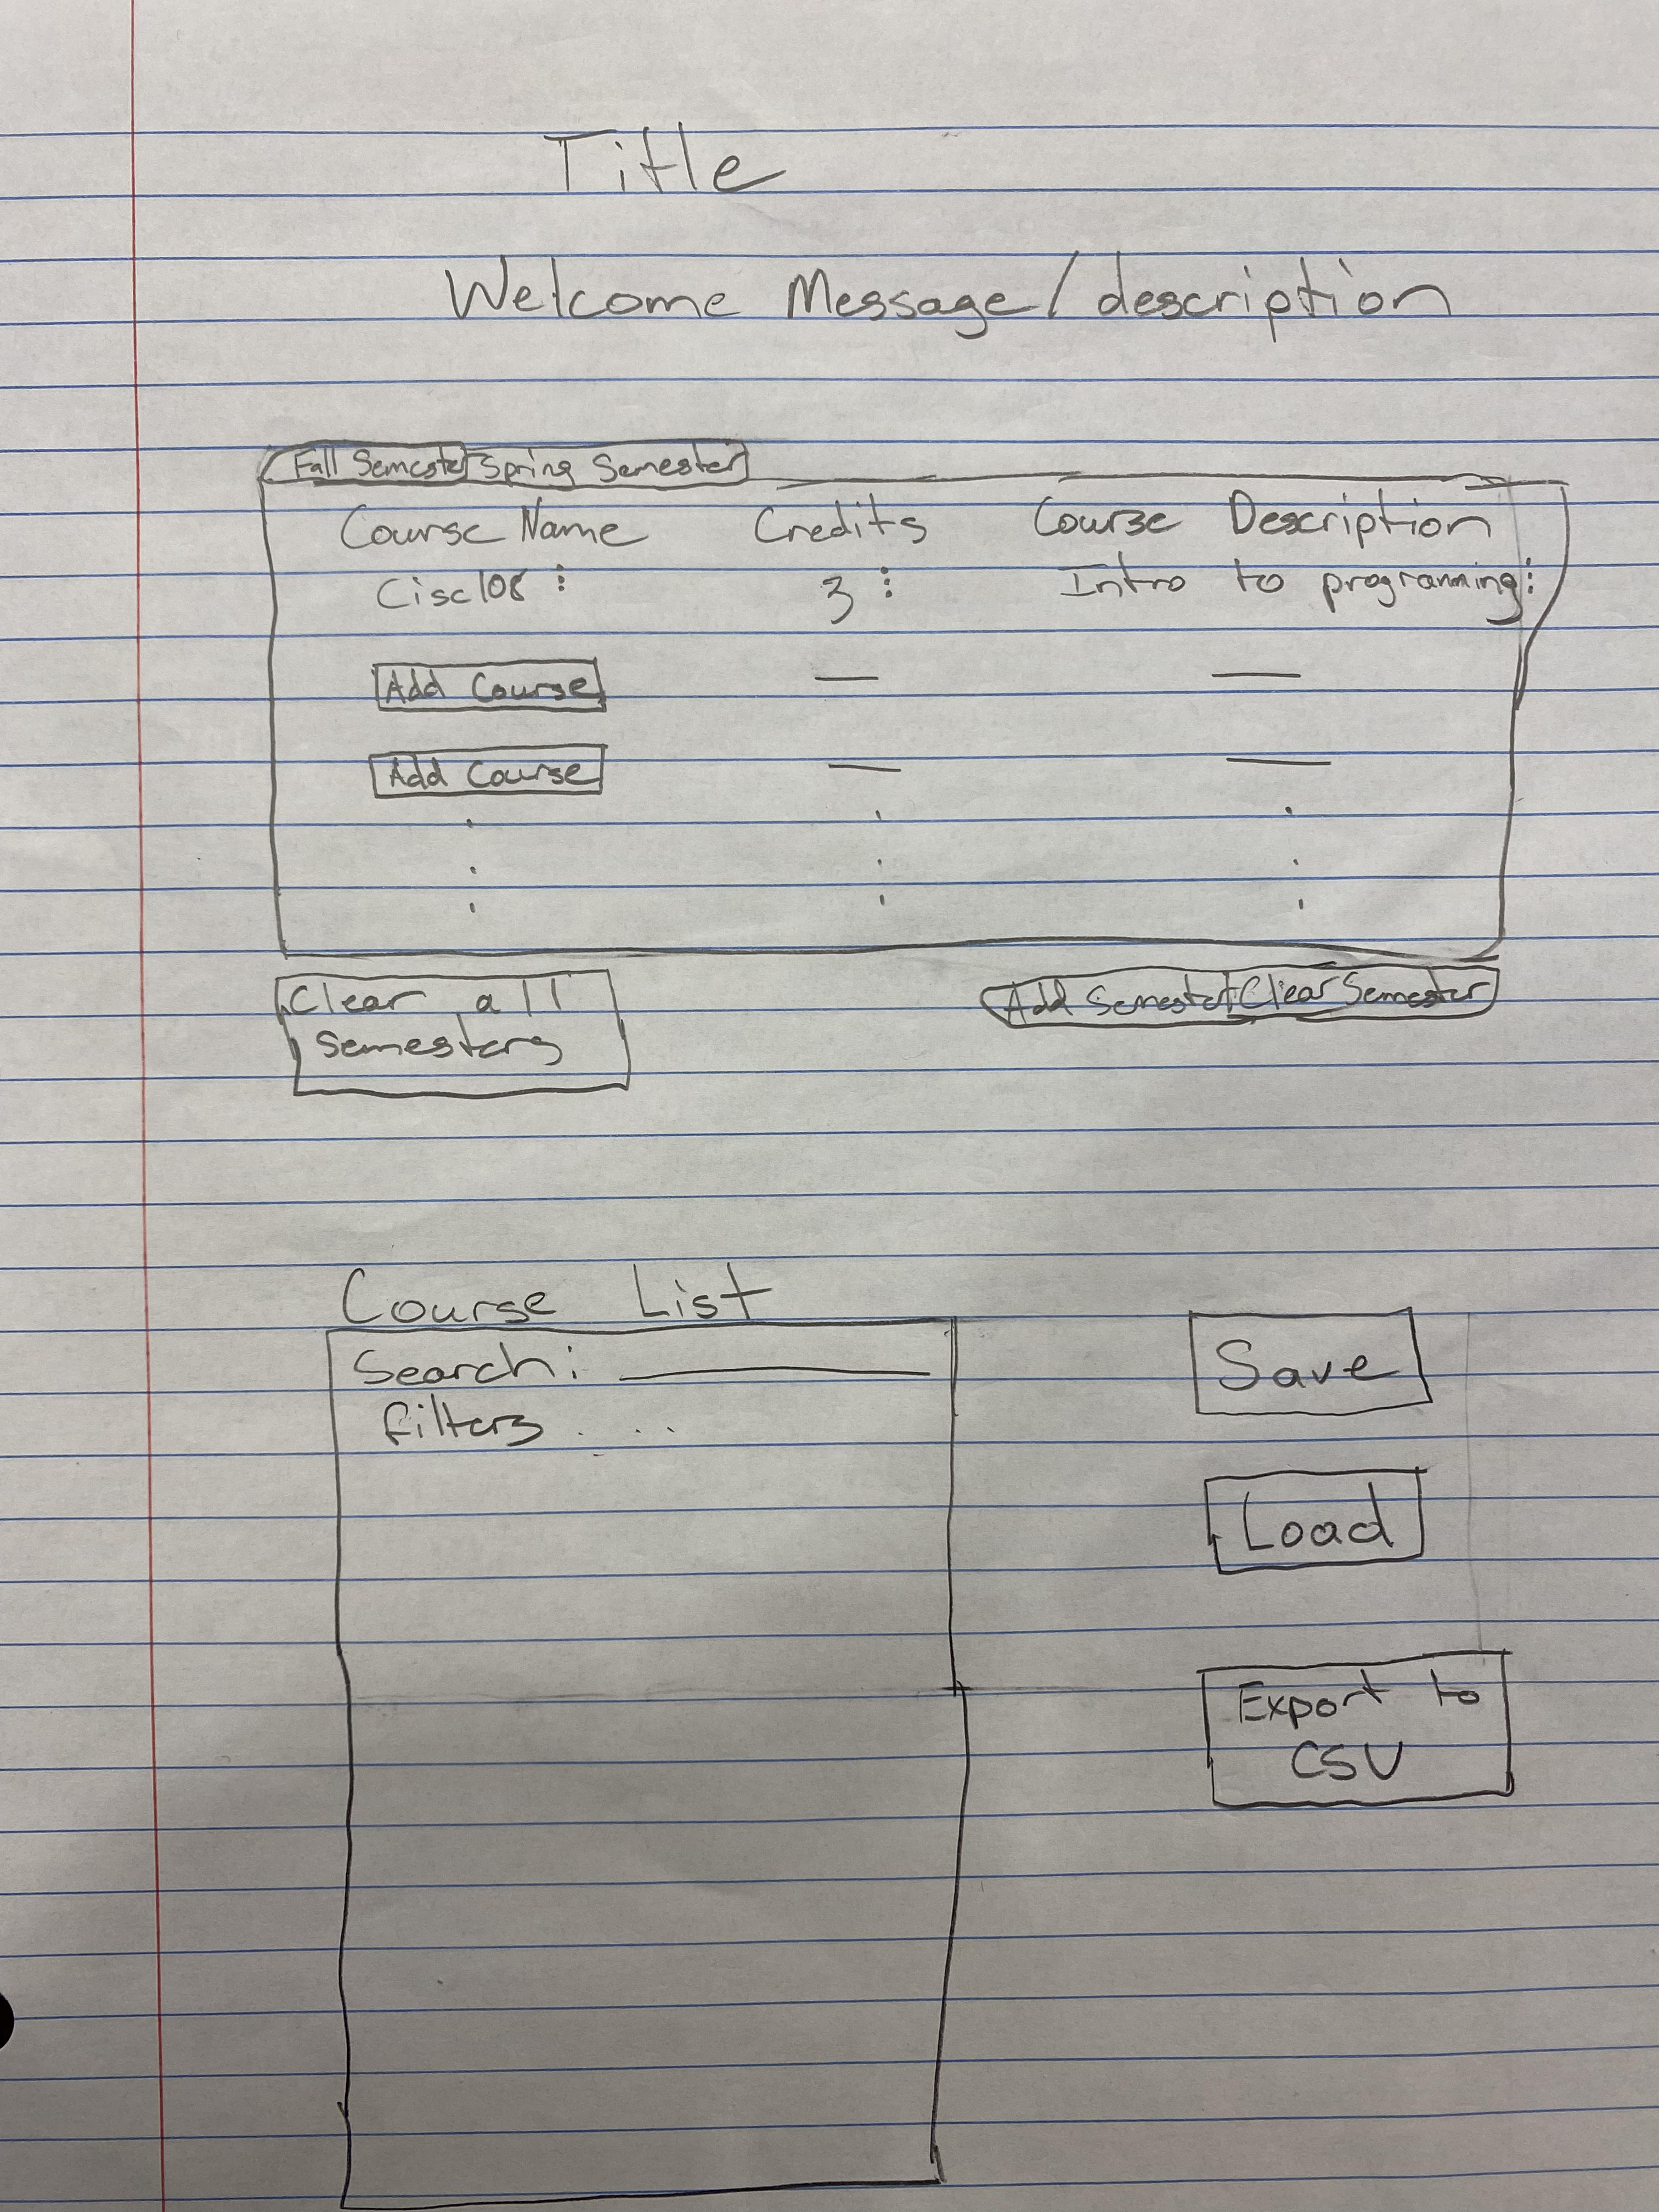 Title
Welcome Message/description
Fall Semester Spring Semester
Course Name Credits Course Description
Cisc108 : 3 : Intro to programming:
Add Course — —
Add Course — —
Clear all Semesters
Add Semester Clear Semester
Course List
Search:
filters ...
Save
Load
Export to
CSV